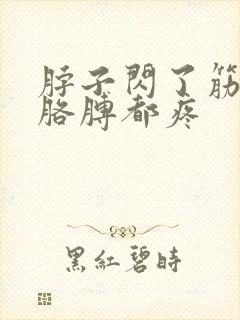 脖子閃了筋
胳膊都疼
黑紅碧時